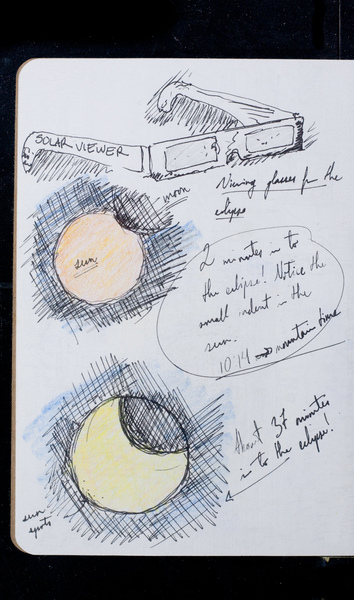 SOLAR VIEWER
Viewing glasses for the
eclipse
moon
sun
2 minutes in to
the eclipse! Notice the
small indent in the
sun.
10:14 mountain time
About 37 minutes
in to the eclipse!
sun
spots